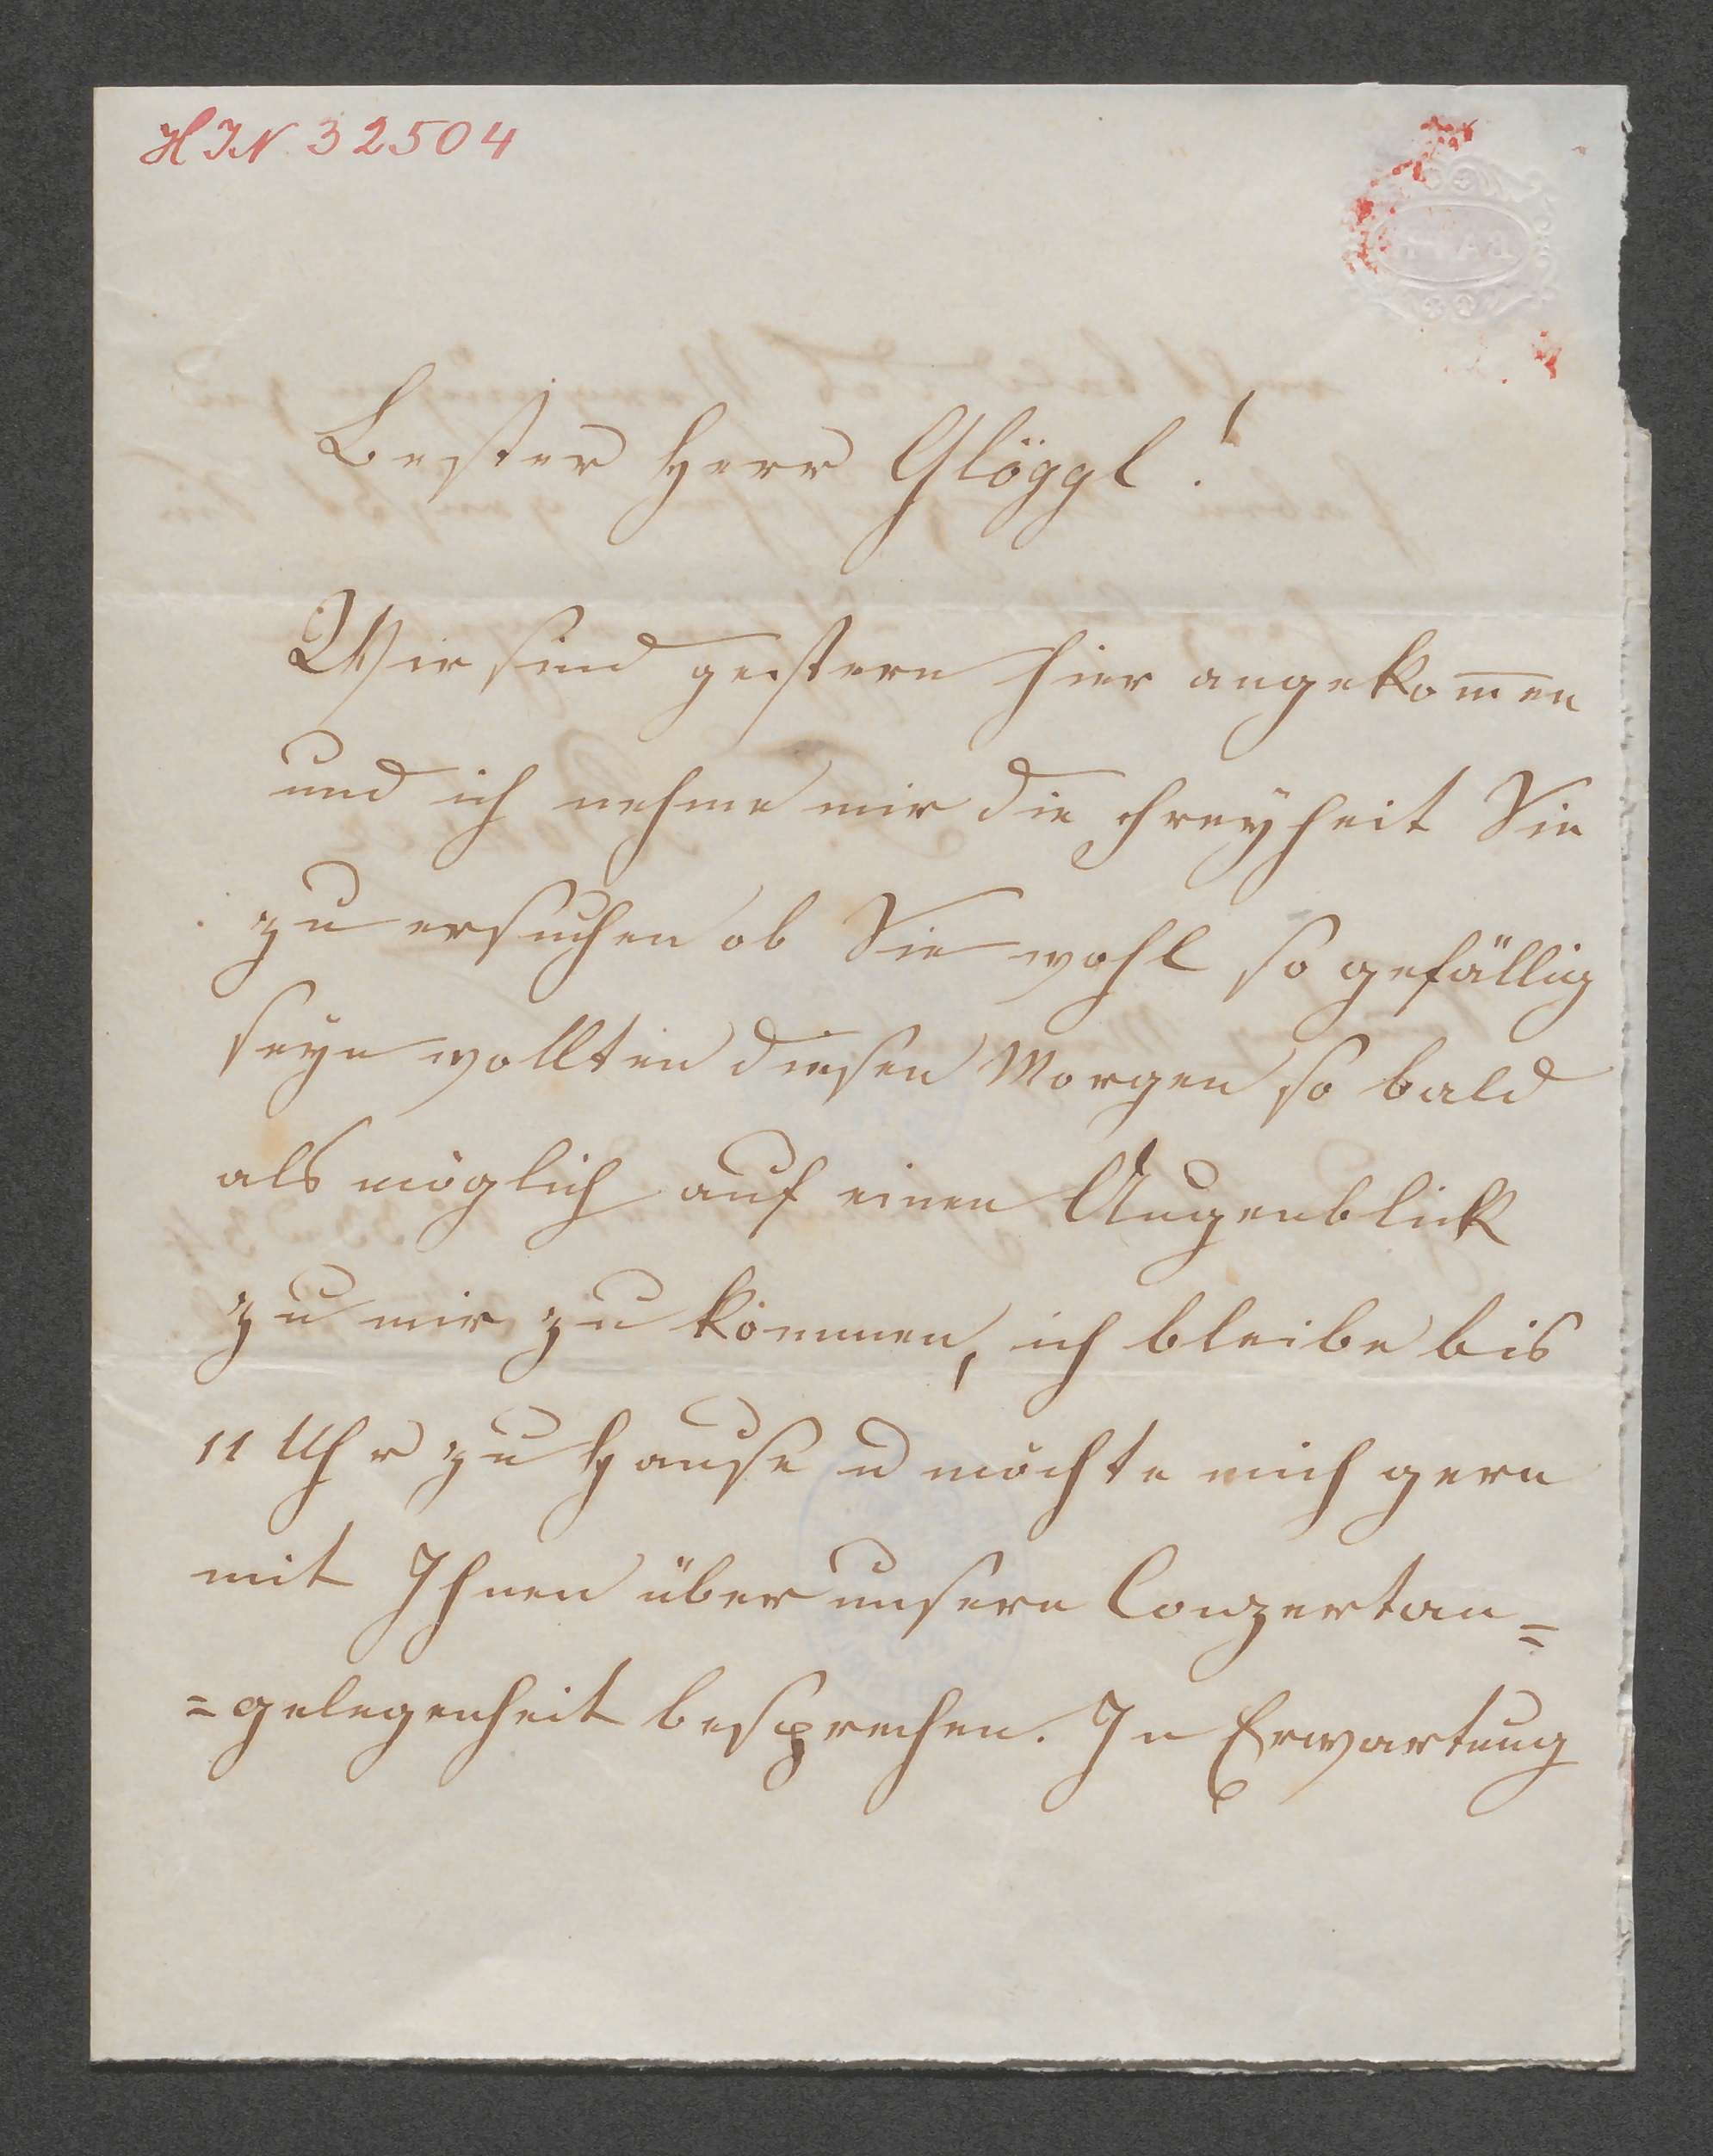 HIN 32504
Bester Herr Glöggl!
Wir sind gestern hier angekom̅en
und ich nehme mir die Freyheit Sie
zu ersuchen ob Sie wohl so gefällig
seyn wollten diesen Morgen so bald
als möglich auf einen Augenblick
zu mir zu kommen, ich bleibe bis
11 Uhr zu Hause u möchte mich gern
mit Ihnen über unsere Conzertan=
=gelegenheit besprechen. In Erwartung